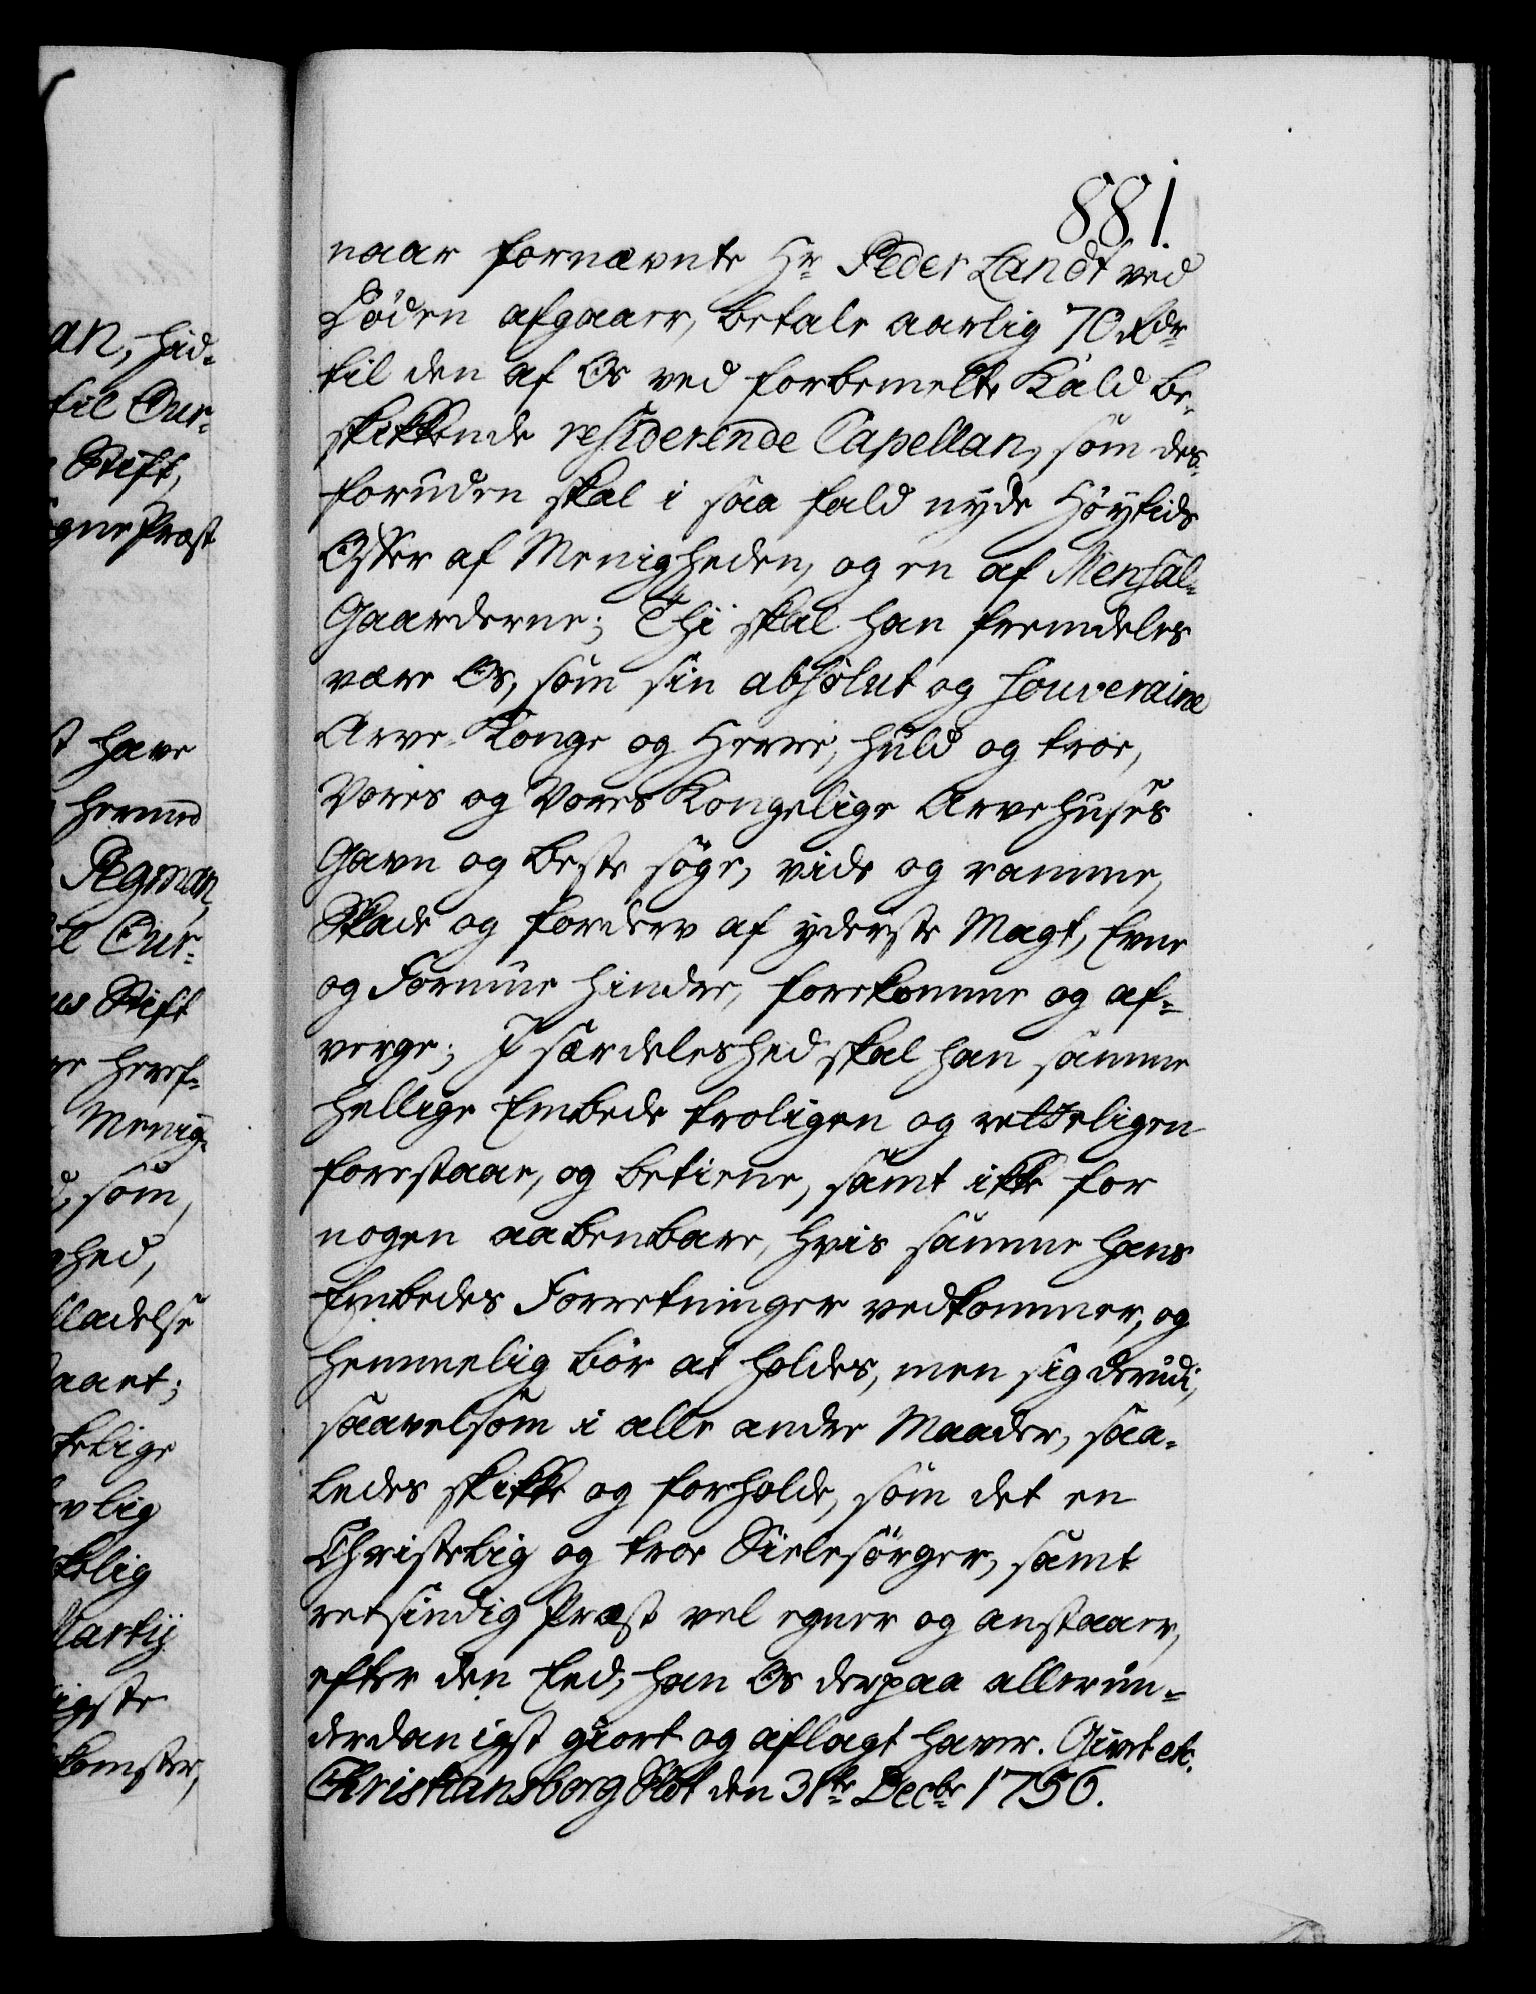 881.
naar fornævnte Hr Peder Landt ved
Døden afgaaer, betale aarlig 70 Rdr
til den af Os ved forbemelte Kald be-
skikkende residerende Capellan, som des-
foruden skal i saa fald nyde Höytids
Offer af Menigheden, og en af Mensal-
Gaarderne; Thi skal han fremdeles
være Os, som sin absolut og souveraine
Arve-Konge og Herre, huld og troe,
Vores og Vores Kongelige Arvehuses
Gavn og beste söge, vide og ramme,
Skade og forderv af yderste Magt, Evne
og Formue hindre, forekomme og af-
verge; I særdeleshed skal han samme
hellige Embede troligen og retteligen
forestaae, og betiene, samt ikke for
nogen aabenbare, hvis samme hans
Embedes Forretninger vedkommer, og
hemmelig bör at holdes, men sig derudi,
saavelsom i alle andre Maader, saa-
ledes skikke og forholde, som det en
Christelig og troe Sielesörger, samt
retsindig Præst vel egner og anstaaer,
efter den Eed, han Os derpaa allerun-
derdanigst giort og aflagt haver. Givet etc.
Christiansborg Slot den 31te Decbr 1756.
an, hid-
til Our-
Stift,
gne Præst
have
hermed
Pegman,
Our-
Stift
heref-
Menig-
som,
ghed,
lladelse
aaet;
telige
vlig
kelig
Martij
igste
komster,